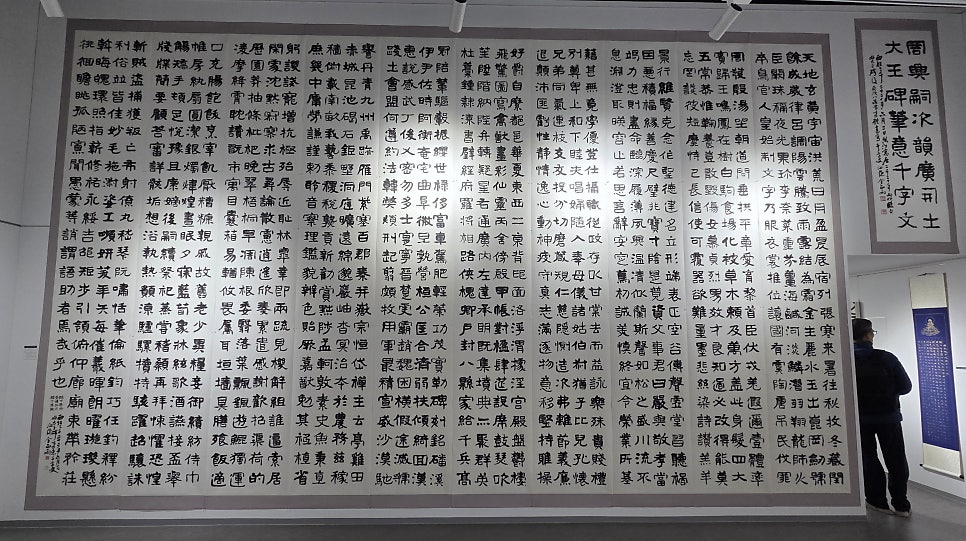 周興嗣次韻廣开土
大王碑筆意千字文
天地玄黃宇宙洪荒日月盈昃辰宿列張寒來暑往秋收冬藏閏
餘成歲律呂調陽雲騰致雨露結為霜金生麗水玉出崑岡劍號
巨闕珠稱夜光果珍李柰菜重芥薑海鹹河淡鱗潛羽翔龍師火
帝鳥官人皇始制文字乃服衣裳推位讓國有虞陶唐弔民伐罪
周發殷湯坐朝問道垂拱平章愛育黎首臣伏戎羌遐邇壹體率
賓歸王鳴鳳在樹白駒食場化被草木賴及萬方蓋此身髮四大
五常恭惟鞠養豈敢毀傷女慕貞烈男效才良知過必改得能莫
忘罔談彼短靡恃己長信使可覆器欲難量墨悲絲染詩讚羔羊
景行維賢克念作聖德建名立形端表正空谷傳聲虛堂習聽禍
因惡積福緣善慶尺璧非寶寸陰是競資父事君曰嚴與敬孝當
竭力忠則盡命臨深履薄夙興溫凊似蘭斯馨如松之盛川流不
息淵澄取映容止若思言辭安定篤初誠美慎終宜令榮業所基
藉甚無竟學優登仕攝職從政存以甘棠去而益詠樂殊貴賤禮
別尊卑上和下睦夫唱婦隨入奉母儀諸姑伯叔猶子比兒孔懷
兄弟同氣連枝交友投分切磨箴規仁慈隱惻造次弗離節義廉
退顛沛匪虧性靜情逸心動神疲守真志滿逐物意移堅持雅操
好爵自縻都邑華夏東西二京背邙面洛浮渭據涇宮殿盤鬱樓
飛驚圖寫禽獸畫綵仙靈丙舍傍啟甲帳對楹肆筵設席鼓瑟吹
笙陞階納陛弁轉疑星右通廣內左達承明既集墳典亦聚群英
杜稾鍾隸漆書壁經府羅將相路俠槐卿戶封八縣家給千兵高
冠陪輦驅轂振纓世祿侈富車駕肥輕策功茂實勒碑刻銘磻溪
伊尹佐時阿衡奄宅曲阜微旦孰營桓公匡合濟弱扶傾綺迴漢
惠說感武丁俊乂密勿多士寔寧晉楚更霸趙魏困橫假途滅虢
踐土會盟何遵約法韓弊煩刑起翦頗牧用軍最精宣威沙漠馳
譽丹青九州禹跡雁門紫塞百郡秦并嶽宗恒岱禪主云亭雞田
赤城昆池碣石鉅野洞庭曠遠綿邈巖岫杳冥治本於農務茲稼
穡俶載南畝我藝黍稷稅熟貢新勸賞黜陟孟軻敦素史魚秉直
庶幾中庸勞謙謹敕聆音察理鑑貌辨色貽厥嘉猷勉其祗植省
躬譏誡寵增抗極殆辱近恥林皋幸即兩疏見機解組誰逼索居
閑處沈默寂寥求古尋論散慮逍遙欣奏累遣慼謝歡招渠荷的
歷園莽抽條枇杷晚翠梧桐早凋陳根委翳落葉飄颻遊鵾獨運
凌摩絳霄耽讀翫市寓目囊箱易輶攸畏屬耳垣墻具膳飡飯適
口充腸飽飫烹宰飢厭糟糠親戚故舊老少異糧妾御績紡侍巾
帷房紈扇圓潔銀燭煒煌晝眠夕寐藍筍象床絃歌酒讌接杯舉
觴矯手頓足悅豫且康嫡後嗣續祭祀蒸嘗稽顙再拜悚懼恐惶
牋牒簡要顧答審詳骸垢想浴執熱願涼驢騾犢特駭躍超驤誅
斬賊盜捕獲叛亡布射僚丸嵇琴阮嘯恬筆倫紙鈞巧任釣釋紛
利俗並皆佳妙毛施淑姿工顰妍笑年矢每催羲暉朗曜璇璣懸
斡晦魄環照指薪修祐永綏吉劭矩步引領俯仰廊廟束帶矜莊
徘徊瞻眺孤陋寡聞愚蒙等誚謂語助者焉哉乎也